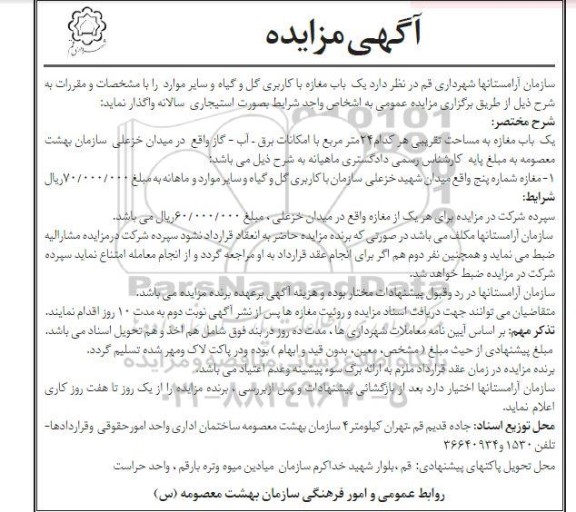 آگهی مزایده
سازمان آرامستانها شهرداری قم در نظر دارد یک باب مغازه با کاربری گل و گیاه و سایر موارد را با مشخصات و مقررات به
شرح ذیل از طریق برگزاری مزایده عمومی به اشخاص واجد شرایط بصورت استیجاری سالانه واگذار نماید:
شرح مختصر:
یک باب مغازه به مساحت تقریبی هر کدام ۲۴متر مربع با امکانات برق ـ آب - گاز واقع در میدان خزعلی سازمان بهشت
معصومه به مبلغ پایه کارشناس رسمی دادگستری ماهیانه به شرح ذیل می باشد:
۱- مغازه شماره پنج واقع میدان شهید خزعلی سازمان با کاربری گل و گیاه و سایر موارد و ماهانه به مبلغ ۷۰/۰۰۰/۰۰۰ریال
شرایط:
سپرده شرکت در مزایده برای هر یک از مغازه واقع در میدان خزعلی ، مبلغ ۶۰/۰۰۰/۰۰۰ریال می باشد.
سازمان آرامستانها مکلف می باشد در صورتی که برنده مزایده حاضر به انعقاد قرارداد نشود سپرده شرکت در مزایده مشارالیه
ضبط می نماید و همچنین نفر دوم هم اگر برای انجام عقد قرارداد به او مراجعه گردد و از انجام معامله امتناع نماید سپرده
شرکت در مزایده ضبط خواهد شد.
سازمان آرامستانها در رد وقبول پیشنهادات مختار بوده و هزینه آگهی برعهده برنده مزایده می باشد.
متقاضیان می توانند جهت دریافت اسناد مزایده و روئیت مغازه ها پس از نشر آگهی نوبت دوم به مدت ۱۰ روز اقدام نمایند.
تذکر مهم: بر اساس آیین نامه معاملات شهرداری ها ، مدت ده روز در بند فوق شامل هم اخذ و هم تحویل اسناد می باشد.
مبلغ پیشنهادی از حیث مبلغ ( مشخص، معین، بدون قید و ابهام ) بوده ودر پاکت لاک ومهر شده تسلیم گردد.
برنده مزایده در زمان عقد قرارداد ملزم به ارائه برگ سوء پیشینه وعدم اعتیاد می باشد.
سازمان آرامستانها اختیار دارد بعد از بازگشائی پیشنهادات و پس ازبررسی ، برنده مزایده را از یک روز تا هفت روز کاری
اعلام نماید.
محل توزیع اسناد: جاده قدیم قم ـتهران کیلومتر۴ سازمان بهشت معصومه ساختمان اداری واحد امورحقوقی وقراردادها-
تلفن ۱۵۳۰ و۳۶۶۴۰۹۳۴
محل تحویل پاکتهای پیشنهادی: قم ،بلوار شهید خداکرم سازمان میادین میوه وتره بارقم ، واحد حراست
روابط عمومی و امور فرهنگی سازمان بهشت معصومه (س)
ParsNamadData
۰۲۱-۸۸۳۴۹۶۷۰-۵